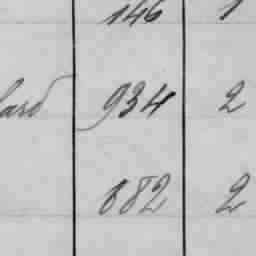 146 1
934 2
682 2